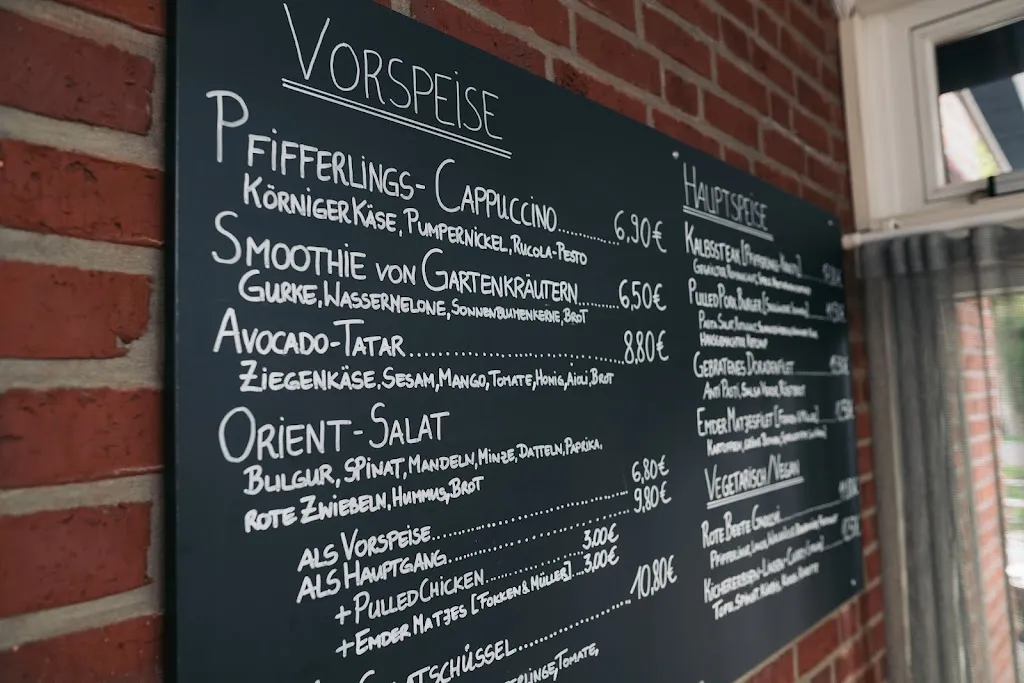 VORSPEISE
PFIFFERLINGS-CAPPUCCINO........... 6,90€
KÖRNIGER KÄSE, PUMPERNICKEL, RUCOLA-PESTO
SMOOTHIE VON GARTENKRÄUTERN....... 6,50€
GURKE, WASSERMELONE, SONNENBLUMENKERNE, BROT
AVOCADO-TATAR........................... 8,80€
ZIEGENKÄSE, SESAM, MANGO, TOMATE, HONIG, AIOLI, BROT
ORIENT-SALAT
BULGUR, SPINAT, MANDELN, MINZE, DATTELN, PAPRIKA,
ROTE ZWIEBELN, HUMMUS, BROT
ALS VORSPEISE........................... 6,80€
ALS HAUPTGANG........................... 9,80€
+PULLED CHICKEN............... 3,00€
+EMDER MATJES [FOKKEN & MÜLLER].... 3,00€
TSCHÜSSEL................... 10,80€
TOMATE,
HAUPTSPEISE
KALBSSTEAK
PULLED PORK BURGER
GEBRATENES DORADENFILET
ANTI PASTI, SALSA VERDE, RÖSTBROT
EMDER MATJESFILET [FOKKEN & MÜLLER]
VEGETARISCH/VEGAN
ROTE BEETE GNOCCHI
KICHERERBSEN-LINSEN-CURRY